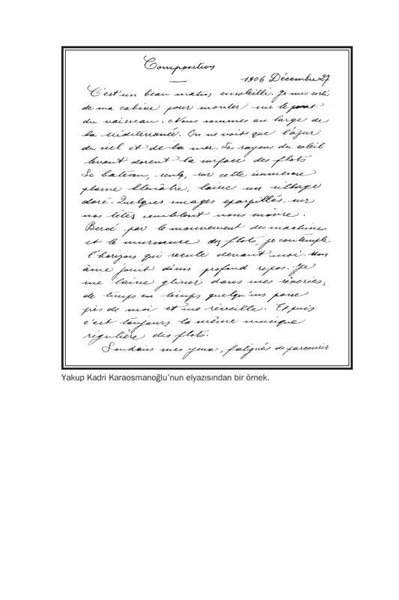 Composition
1906 Décembre 27
C'est un beau matin ensoleillé. Je suis sorti
de ma cabine pour monter sur le pont
du vaisseau. Nous sommes au large de
la Méditerranée. On ne voit que l'azur
du ciel et de la mer. Les rayons du soleil
levant dorent la surface des flots
Le bateau, seul, sur cette immense
plaine bleuâtre, laisse un sillage
doré. Quelques nuages éparpillés, sur
nos têtes semblent nous suivre.
Bercé par le mouvement des machines
et le murmure des flots je contemple
l'horizon qui recule devant moi. Mon
âme jouit d'un profond repos. Je
me laisse glisser dans mes rêveries;
de temps en temps quelqu'un passe
près de moi et me réveille. Et puis
c'est toujours la même musique
régulière des flots.
Soudain mes yeux, fatigués de parcourir
Yakup Kadri Karaosmanoğlu'nun elyazısından bir örnek.